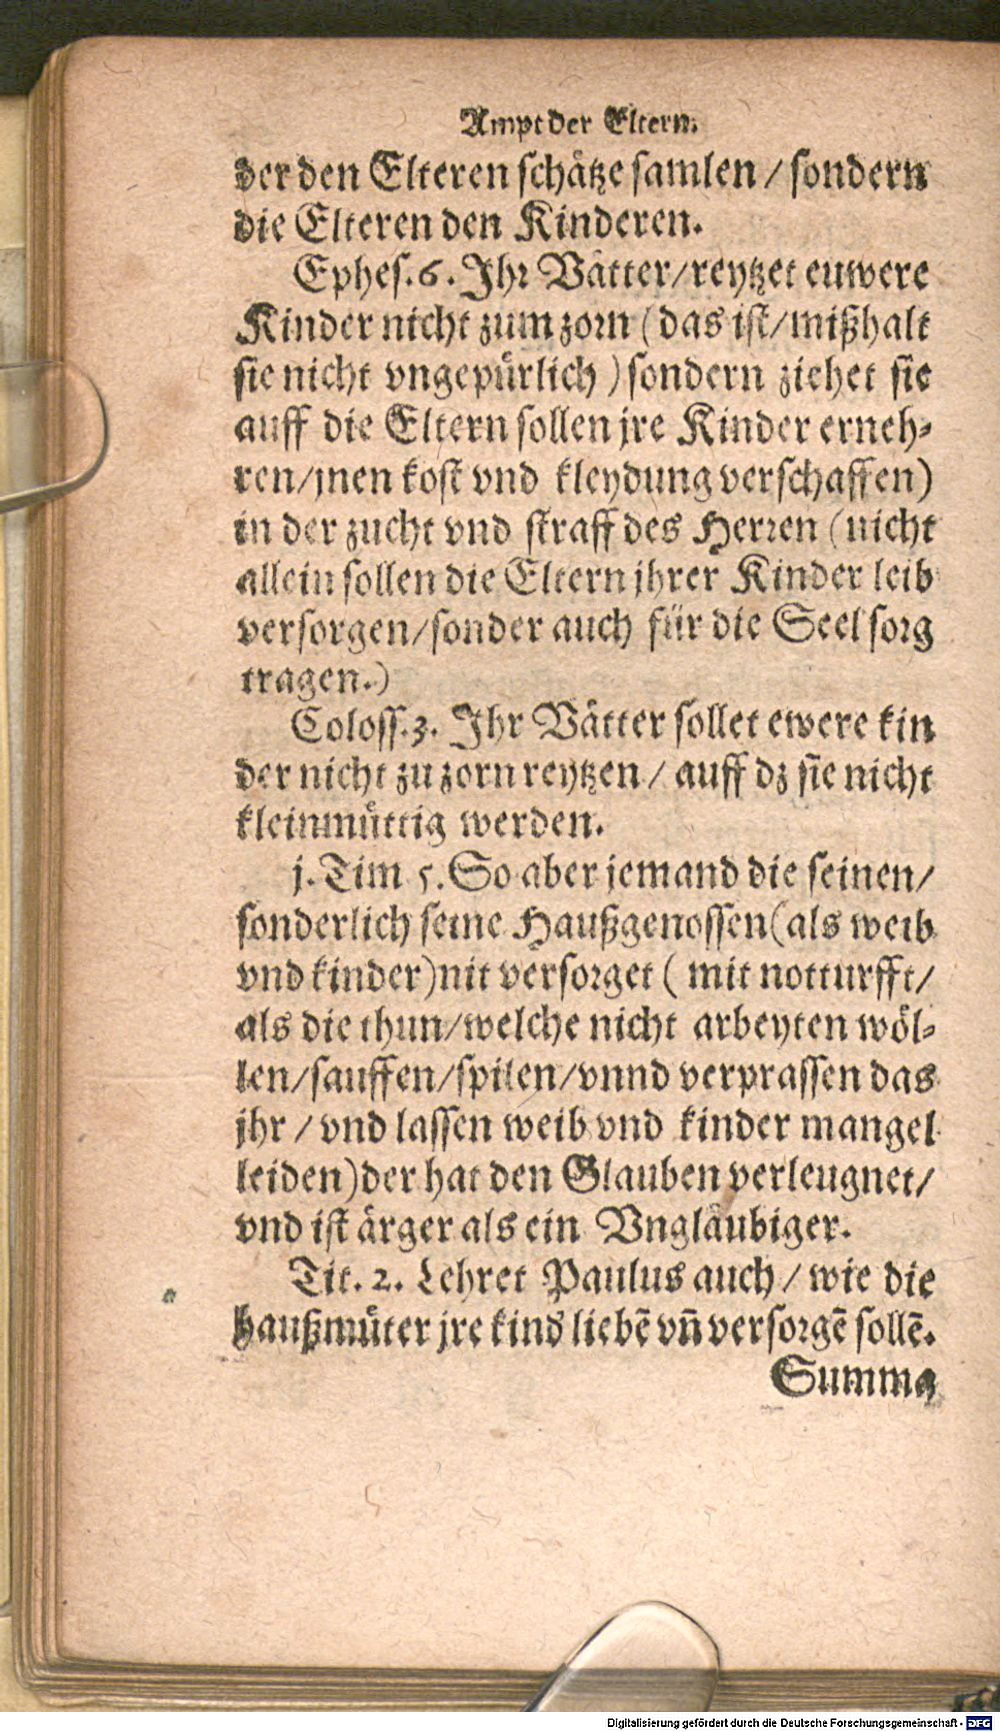 Ampt der Eltern.
der den Elteren schätze samlen / sondern
die Elteren den Kinderen.
Ephes. 6. Ihr Vätter/reytzet euwere
Kinder nicht zum zorn (das ist/mißhalt
sie nicht vngepürlich) sondern ziehet sie
auff die Eltern sollen jre Kinder erneh-
ren/jnen kost vnd kleydung verschaffen)
in der zucht vnd straff des Herren (nicht
allein sollen die Eltern jhrer Kinder leib
versorgen/sonder auch für die Seel sorg
tragen.)
Coloss. 3. Ihr Vätter sollet ewere kin
der nicht zu zorn reytzen / auff dz sie nicht
kleinmüttig werden.
j. Tim 5. So aber jemand die seinen/
sonderlich seine Haußgenossen (als weib
vnd kinder) nit versorget (mit notturfft/
als die thun/welche nicht arbeyten wöl-
len/sauffen/spilen/vnnd verprassen das
jhr / vnd lassen weib vnd kinder mangel
leiden) der hat den Glauben verleugnet/
vnd ist ärger als ein Vngläubiger.
Tit. 2. Lehret Paulus auch / wie die
haußmüter jre kind liebē vñ versorgē sollē.
Summa
Digitalisierung gefördert durch die Deutsche Forschungsgemeinschaft - DFG